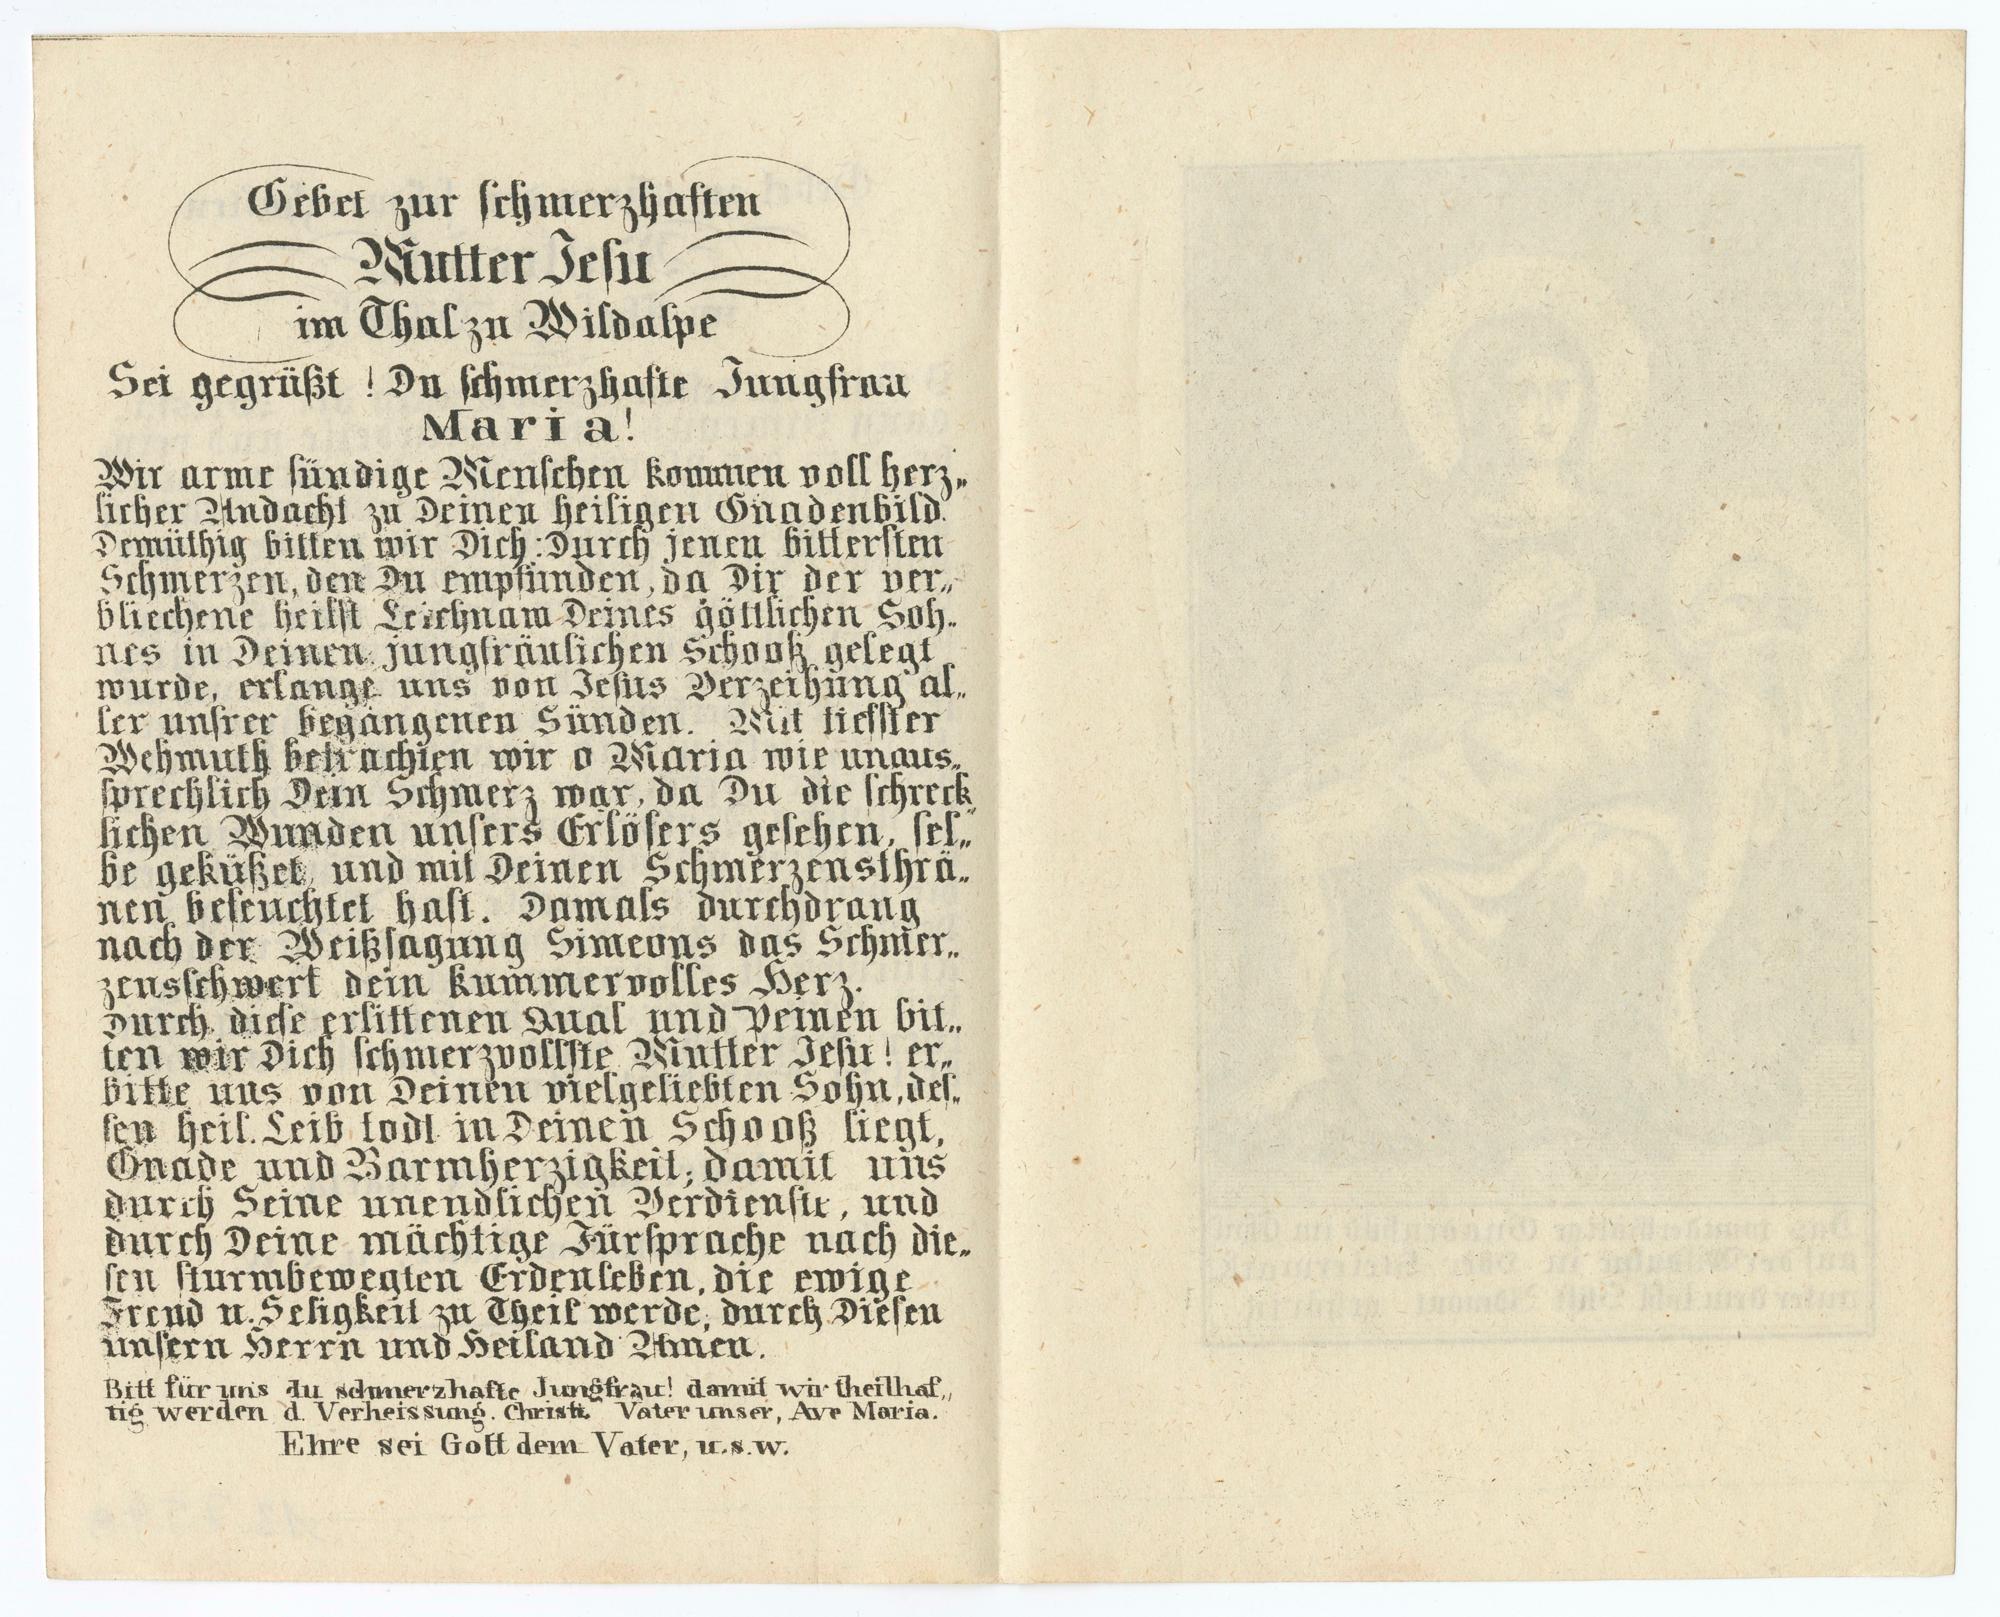 Gebet zur schmerzhaften
Mutter Jesu
im Thal zu Wildalpe
Sei gegrüßt! Du schmerzhafte Jungfrau
Maria!
Wir arme sündige Menschen kommen voll herz„
licher Andacht zu Deinen heiligen Gnadenbild.
Demüthig bitten wir Dich: Durch jenen bittersten
Schmerzen, den Du empfunden, da Dir der ver„
bliechene heilst Leichnam Deines göttlichen Soh„
nes in Deinen jungfräulichen Schooß gelegt
wurde, erlange uns von Jesus Verzeihung al„
ler unsrer begangenen Sünden. Mit tiefster
Wehmuth betrachten wir o Maria wie unaus„
sprechlich Dein Schmerz war, da Du die schreck„
lichen Wunden unsers Erlösers gesehen, sel„
be geküßet, und mit Deinen Schmerzensthrä„
nen befeuchtet hast. Damals durchdrang
nach der Weißsagung Simeons das Schmer„
zensschwert dein kummervolles Herz.
Durch diese erlittenen Qual und Peinen bit„
ten wir Dich schmerzvollste Mutter Jesu! er„
bitte uns von Deinen vielgeliebten Sohn, des„
sen heil. Leib todt in Deinen Schooß liegt,
Gnade und Barmherzigkeit; damit uns
durch Seine unendlichen Verdienste, und
durch Deine mächtige Fürsprache nach die„
sen sturmbewegten Erdenleben, die ewige
Freud u. Seligkeit zu Theil werde, durch Diesen
unsern Herrn und Heiland Amen.
Bitt für uns du schmerzhafte Jungfrau! damit wir theilhaf„
tig werden d. Verheissung. Christi. Vater unser, Ave Maria.
Ehre sei Gott dem Vater, u.s.w.